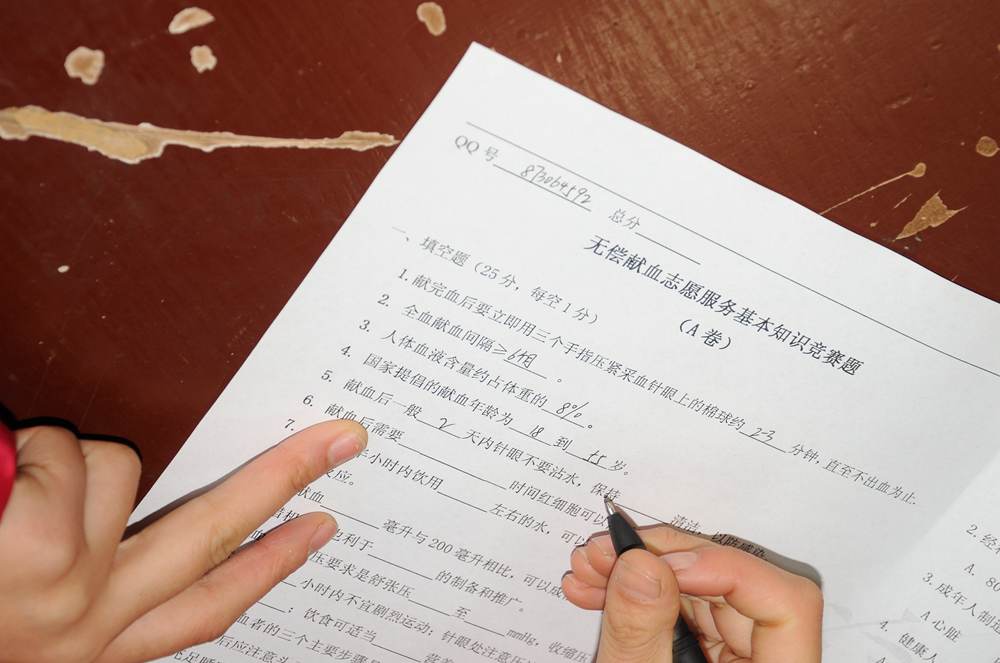 QQ号 873064592 总分
无偿献血志愿服务基本知识竞赛题
(A卷)
一、填空题(25分,每空1分)
1. 献完血后要立即用三个手指压紧采血针眼上的棉球约 2-3 分钟,直至不出血为止.
2. 全血献血间隔≥6个月。
3. 人体血液含量约占体重的 8%。
4. 国家提倡的献血年龄为 18 到 55 岁。
5. 献血后一般 2 天内针眼不要沾水,保持 清洁,以防感染
6. 献血后需要 时间红细胞可以
7. 小时内饮用 左右的水,可以
反应。
献血 毫升与200毫升相比,可以
也利于 的制备和推广。
压要求是舒张压 至 mmHg,收缩压
小时内不宜剧烈运动;针眼处注意
;饮食可适当 营养
血者的三个主要步骤是
后应注意
2. 经
A. 80
3. 成年人制造
A 心脏
4. 健康人
A.